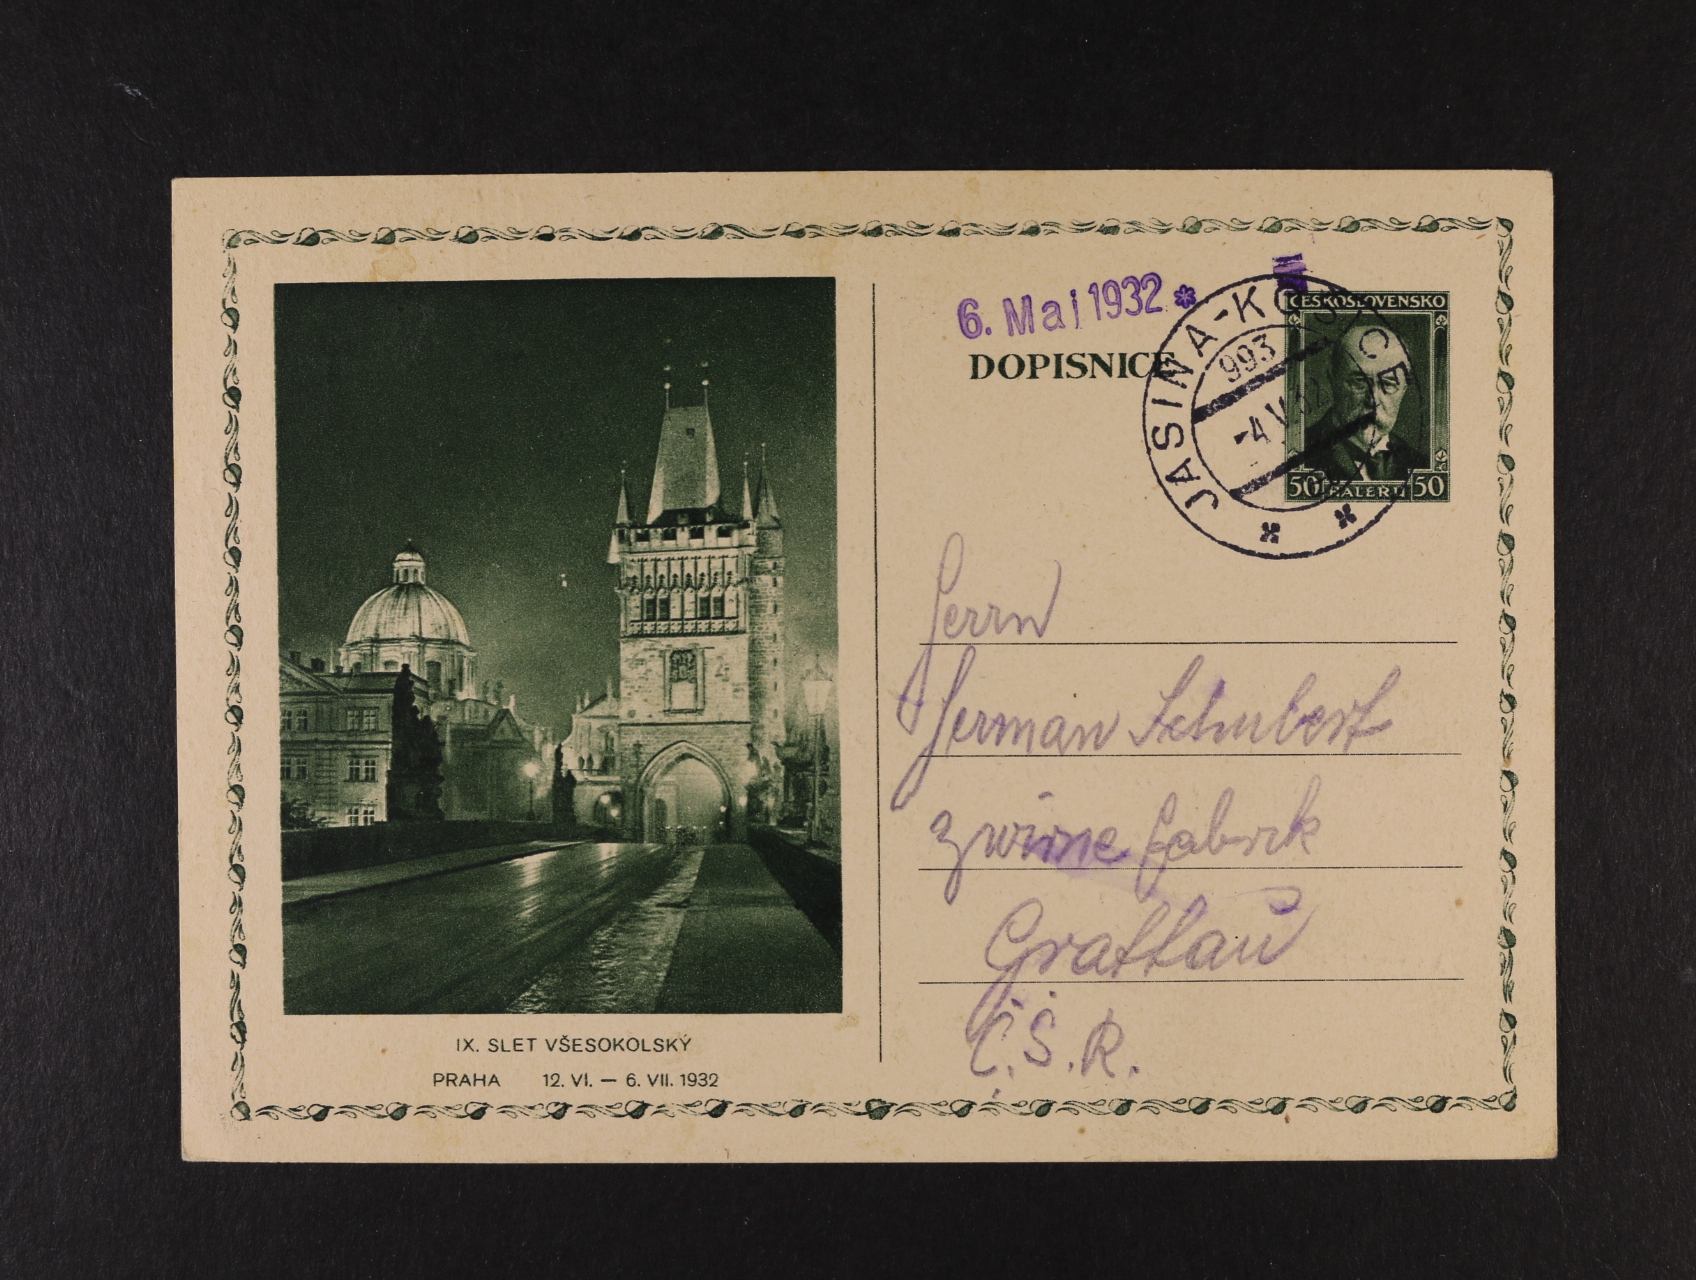 6. Mai 1932
DOPISNICE
JASINA-KOŠICE
993
-4.V.32
ČESKOSLOVENSKO
50 HALÉŘŮ 50
Herrn
Herman Schubert
Zwirne fabrik
Grottau
Č.S.R.
IX. SLET VŠESOKOLSKÝ
PRAHA 12. VI. — 6. VII. 1932